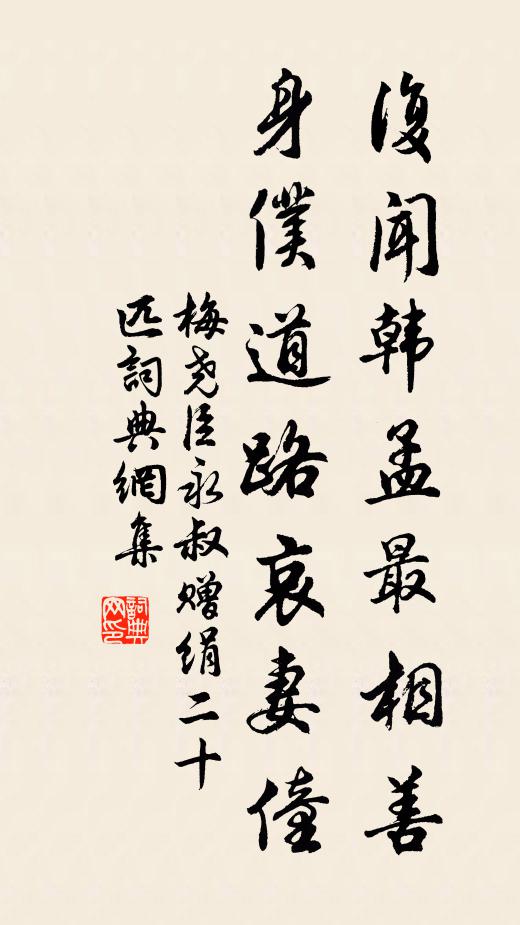 復闻韩孟最相善
身僕道路哀妻僮
梅尧臣永叔赠绢二十
匹詞典網集
詞典
网印